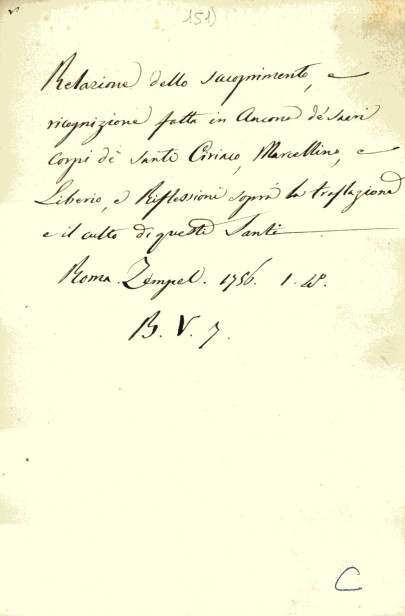 151)
Relazione dello scoprimento, e
ricognizione fatta in Ancona de' Sacri
Corpi de' Santi Ciriaco, Marcellino, e
Liberio, e Riflessioni sopra la traslazione
e il culto di questi Santi
Roma. Zempel. 1756. 1. 4º.
B. V. 7.
C